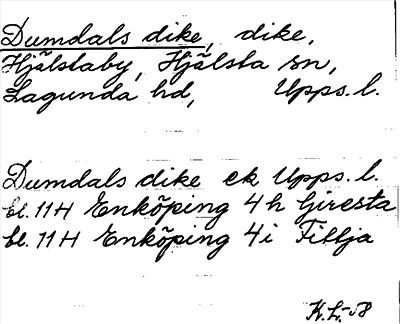 Dumdals dike, dike,
Hjälstaby, Hjälsta sn,
Lagunda hd, Upps. l.
Dumdals dike ek Upps. l.
bl. 11H Enköping 4h Giresta
bl. 11H Enköping 4i Fillja
K.L.-58